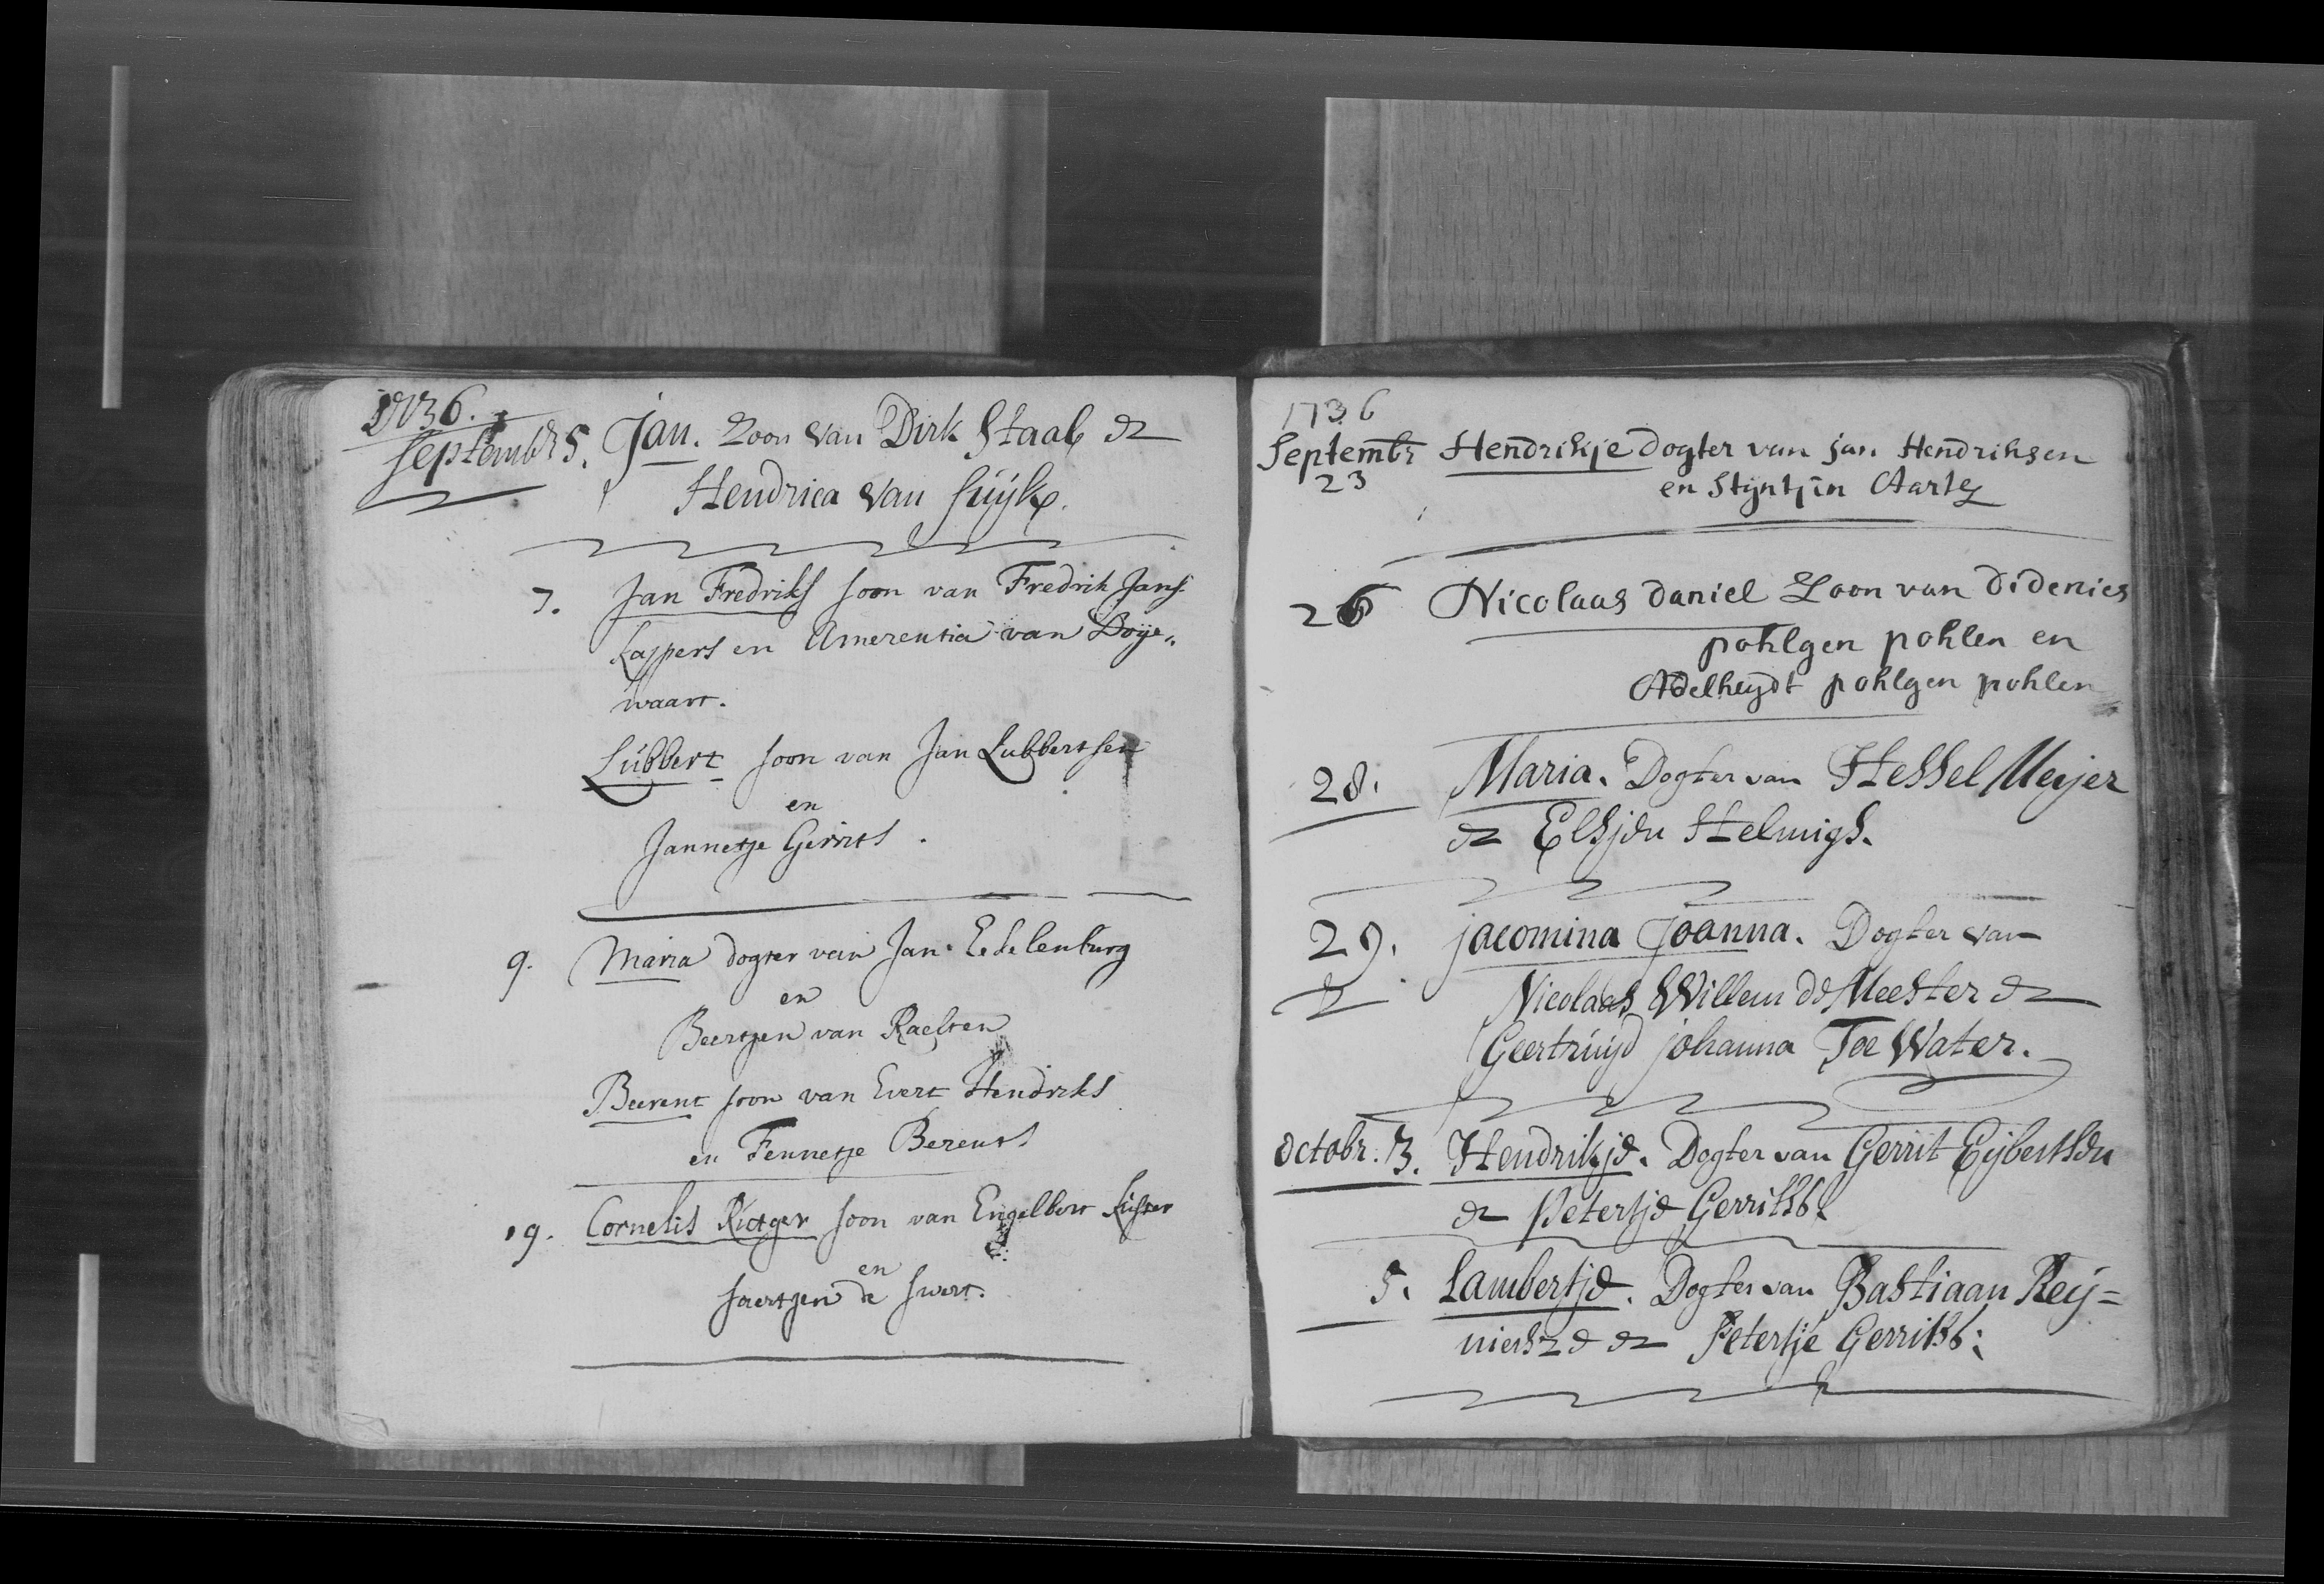 1736.
Septembr 5. Jan. Zoon van Dirk Staal en
Hendrica van Suylen.
7. Jan Fredriks soon van Fredrik Jans
Kappers en Amerentia van Doije„
waart.
Lubbert soon van Jan Lubbertsen
en
Jannetje Gerrits.
9. Maria dogter van Jan Eedelenburg
en
Beertjen van Raelten
Beerent soon van Evert Hendriks
en Fennetje Berents
19. Cornelis Rutger soon van Engelbert
en
de Swert.
1736
Septembr Hendrikje dogter van jan Hendriksen
23 en Styntjen Aarts
26 Nicolaas daniel Zoon van didenies
pohlgen pohlen en
Adelheydt pohlgen pohlen
28. Maria. Dogter van Hessel Meijer
en Elsjen Helmigs.
29. jacomina Joanna. Dogter van
Nicolaas Willem de Meester en
Geertruijd johanna Toe Water.
Octobr. 3. Hendrikje. Dogter van Gerrit Eijbertsen
en Petertje Gerrits.
5. Lambertje. Dogter van Bastiaan Reij=
nierse en Petertje Gerrits.